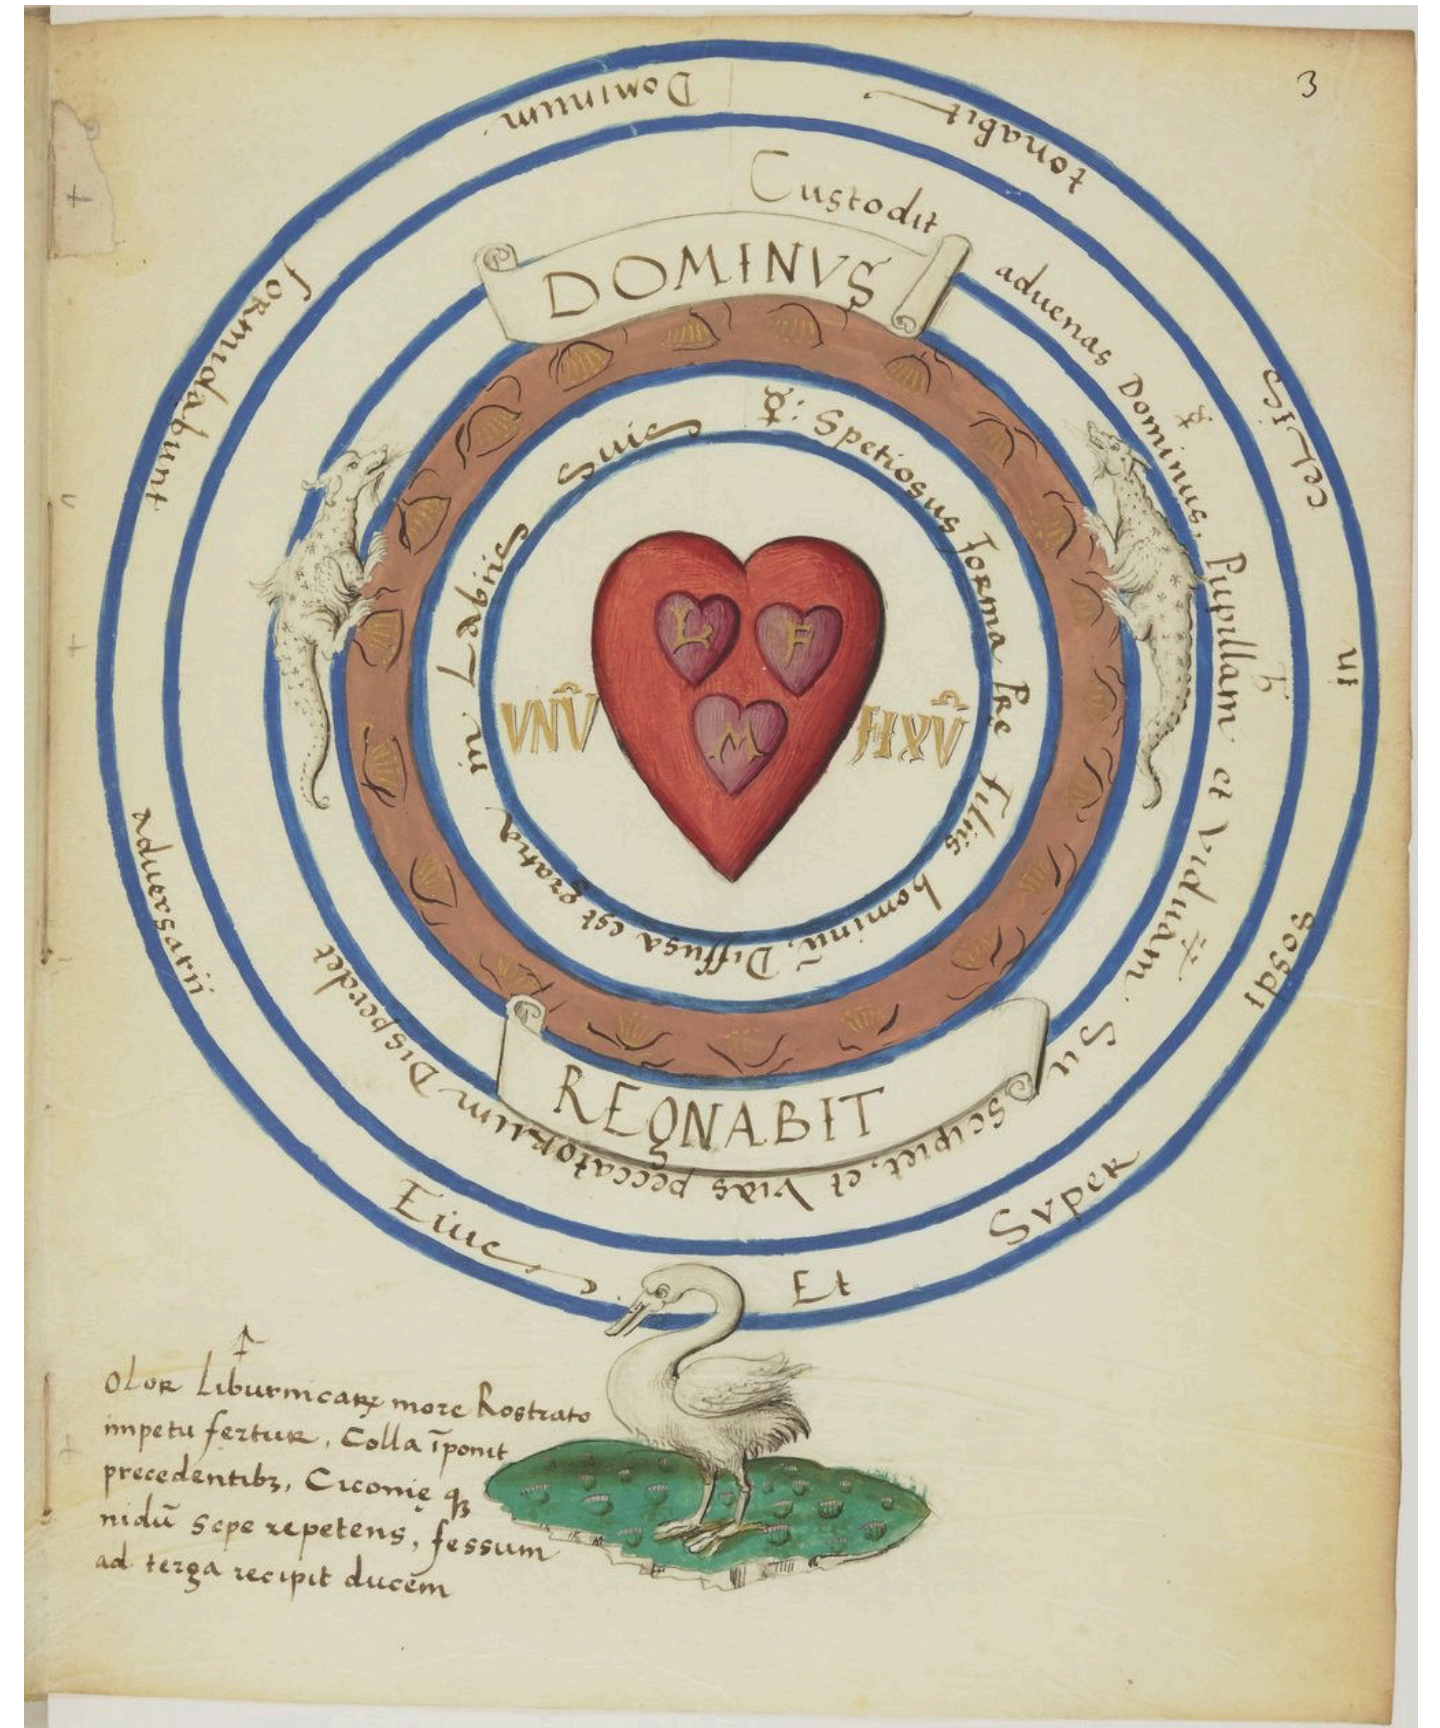 3
Dominum formidabunt adversarii Eius Et Super ipsos in celis tonabit
Custodit advenas Dominus, Pupillam et Viduam Suscipiet, et Vias peccatorum Disperdet
DOMINVS
☿: Spetiosus forma Pre filiis hominũ, Diffusa est gratia in Labiis Suis
L F
M
VNṼ FIXṼ
REGNABIT
Olor Liburnicarꝝ more Rostrato
impetu fertur, Colla ĩponit
precedentibꝫ, Ciconię qꝫ
nidũ sepe repetens, fessum
ad terga recipit ducem